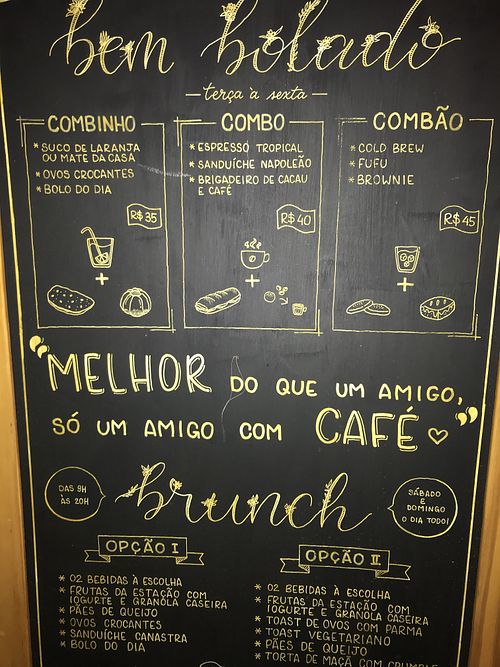 bem bolado
terça à sexta
COMBINHO
* SUCO DE LARANJA
OU MATE DA CASA
* OVOS CROCANTES
* BOLO DO DIA
R$35
COMBO
* ESPRESSO TROPICAL
* SANDUÍCHE NAPOLEÃO
* BRIGADEIRO DE CACAU
E CAFÉ
R$40
COMBÃO
* COLD BREW
* FUFU
* BROWNIE
R$45
"MELHOR DO QUE UM AMIGO,
SÓ UM AMIGO COM CAFÉ"
DAS 9H
ÀS 20H
brunch
SÁBADO
E
DOMINGO
O DIA TODO!
OPÇÃO I
* 02 BEBIDAS À ESCOLHA
* FRUTAS DA ESTAÇÃO COM
IOGURTE E GRANOLA CASEIRA
* PÃES DE QUEIJO
* OVOS CROCANTES
* SANDUÍCHE CANASTRA
* BOLO DO DIA
OPÇÃO II
* 02 BEBIDAS À ESCOLHA
* FRUTAS DA ESTAÇÃO COM
IOGURTE E GRANOLA CASEIRA
* TOAST DE OVOS COM PARMA
* TOAST VEGETARIANO
* PÃES DE QUEIJO
* TORTA DE MAÇÃ COM CRUMBLE